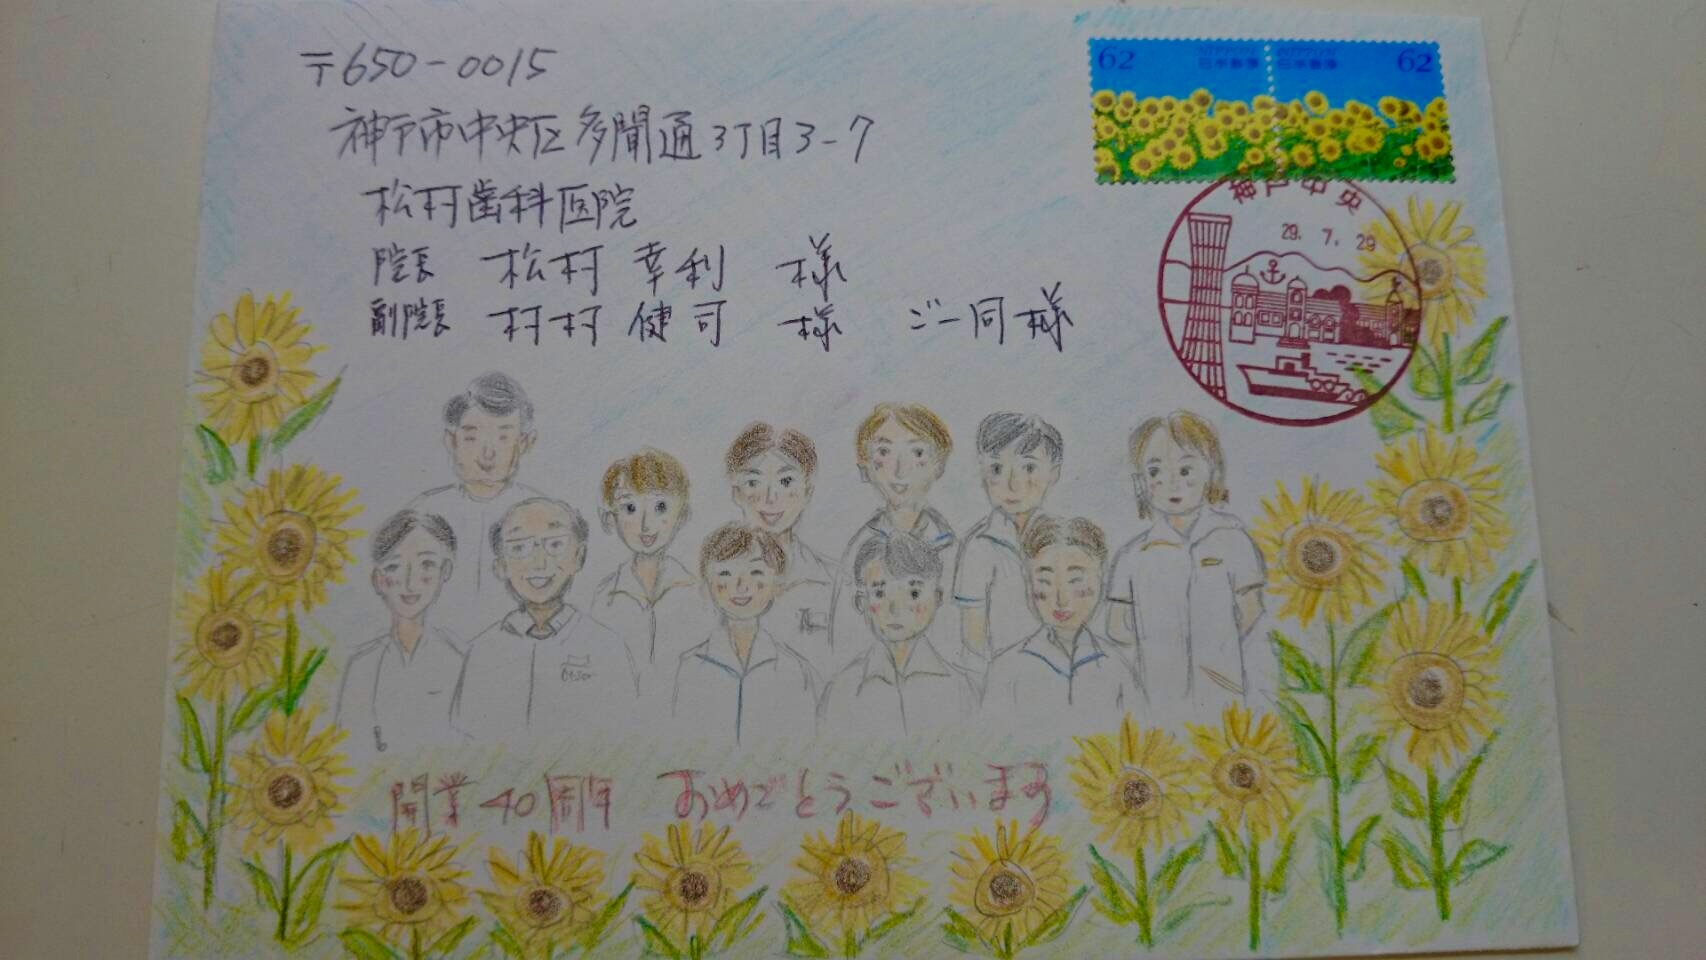 〒650-0015
62 NIPPON 日本郵便
NIPPON 日本郵便 62
神戸市中央区多聞通3丁目3-7
松村歯科医院
神戸中央
29. 7. 29
院長 松村 幸利 様
副院長 村村 健司 様 ご一同様
開業40周年 おめでとうございます